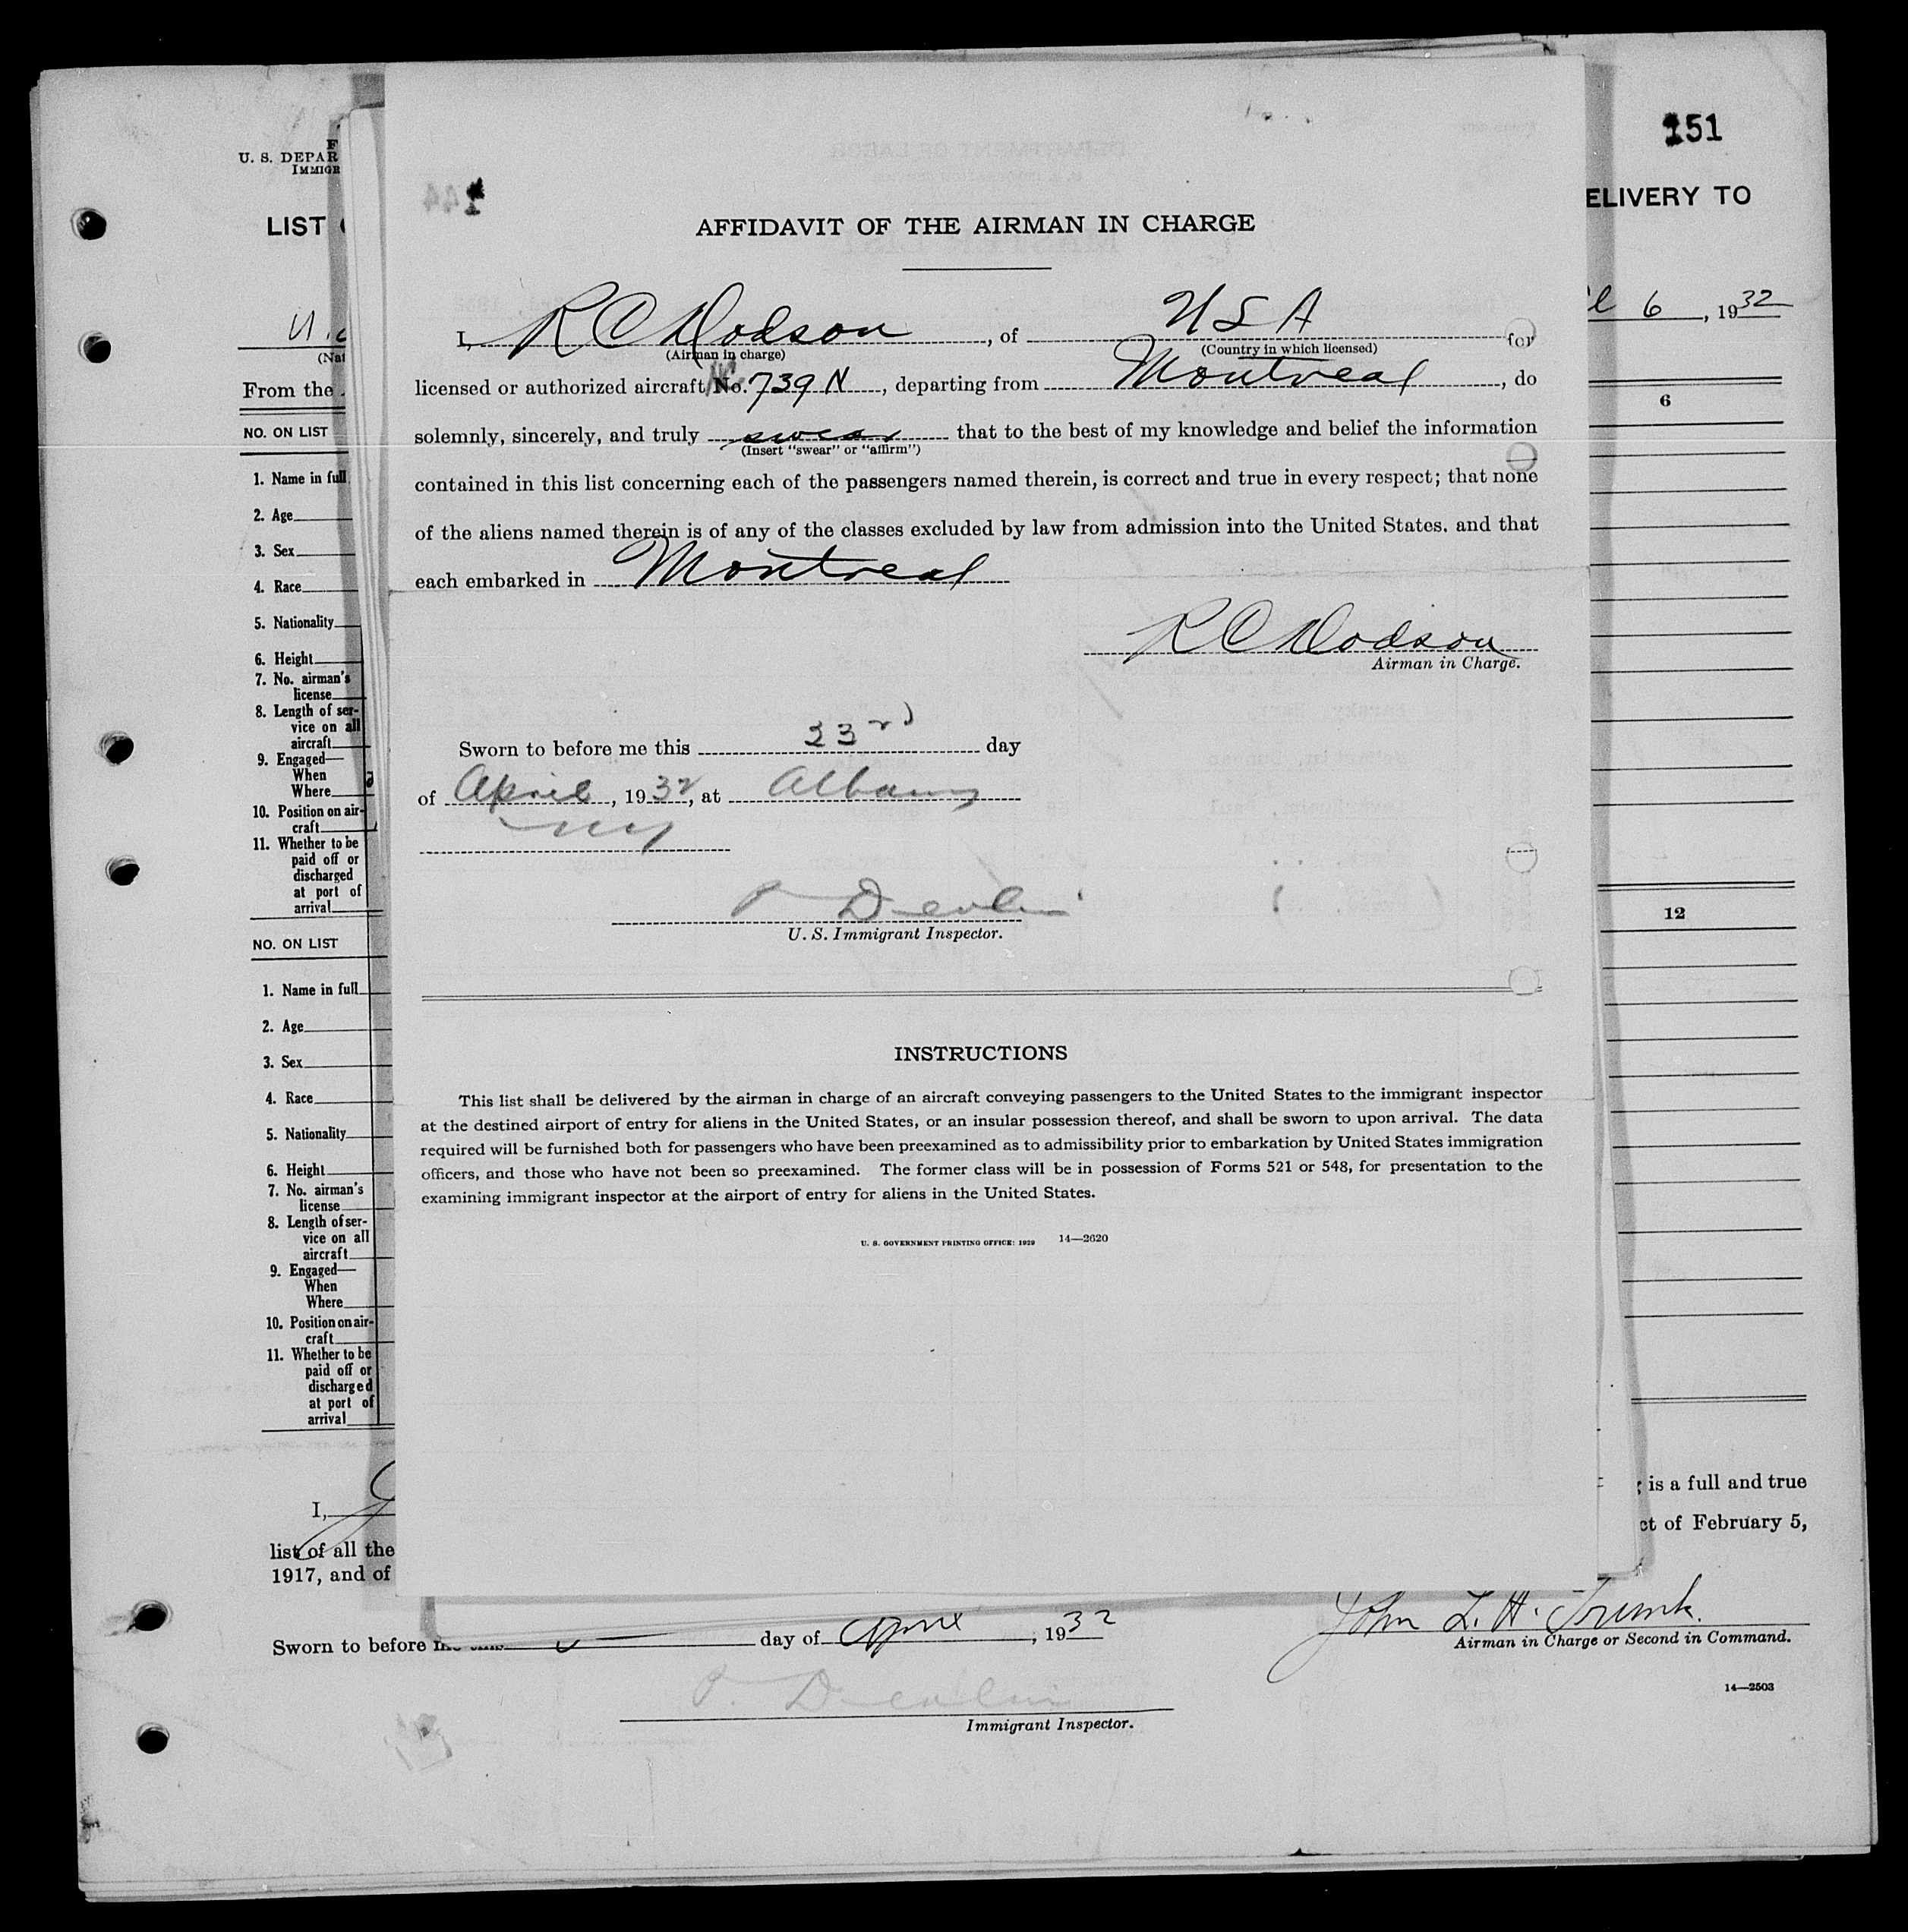 151
U. S. DEPAR
IMMIGR
LIST
ELIVERY TO
6, 1932
From the
6
NO. ON LIST
1. Name in full
2. Age
3. Sex
4. Race
5. Nationality
6. Height
7. No. airman's
license
8. Length of ser-
vice on all
aircraft
9. Engaged—
When
Where
10. Position on air-
craft
11. Whether to be
paid off or
discharged
at port of
arrival
12
NO. ON LIST
1. Name in full
2. Age
3. Sex
4. Race
5. Nationality
6. Height
7. No. airman's
license
8. Length of ser-
vice on all
aircraft
9. Engaged—
When
Where
10. Position on air-
craft
11. Whether to be
paid off or
discharged
at port of
arrival
AFFIDAVIT OF THE AIRMAN IN CHARGE
I, R C Dodson, of U S A for
(Airman in charge) (Country in which licensed)
licensed or authorized aircraft No. 739 N, departing from Montreal, do
solemnly, sincerely, and truly swear that to the best of my knowledge and belief the information
(Insert "swear" or "affirm")
contained in this list concerning each of the passengers named therein, is correct and true in every respect; that none
of the aliens named therein is of any of the classes excluded by law from admission into the United States. and that
each embarked in Montreal
R C Dodson
Airman in Charge.
Sworn to before me this 23rd day
of April, 1932, at Albany
NY
P Devlin
U. S. Immigrant Inspector.
INSTRUCTIONS
This list shall be delivered by the airman in charge of an aircraft conveying passengers to the United States to the immigrant inspector
at the destined airport of entry for aliens in the United States, or an insular possession thereof, and shall be sworn to upon arrival. The data
required will be furnished both for passengers who have been preexamined as to admissibility prior to embarkation by United States immigration
officers, and those who have not been so preexamined. The former class will be in possession of Forms 521 or 548, for presentation to the
examining immigrant inspector at the airport of entry for aliens in the United States.
U. S. GOVERNMENT PRINTING OFFICE: 1929 14—2620
I,
is a full and true
list of all the
ct of February 5,
1917, and of
John L. H. Trunk.
Airman in Charge or Second in Command.
Sworn to before me this 6 day of April, 1932
14—2503
P. Devlin
Immigrant Inspector.